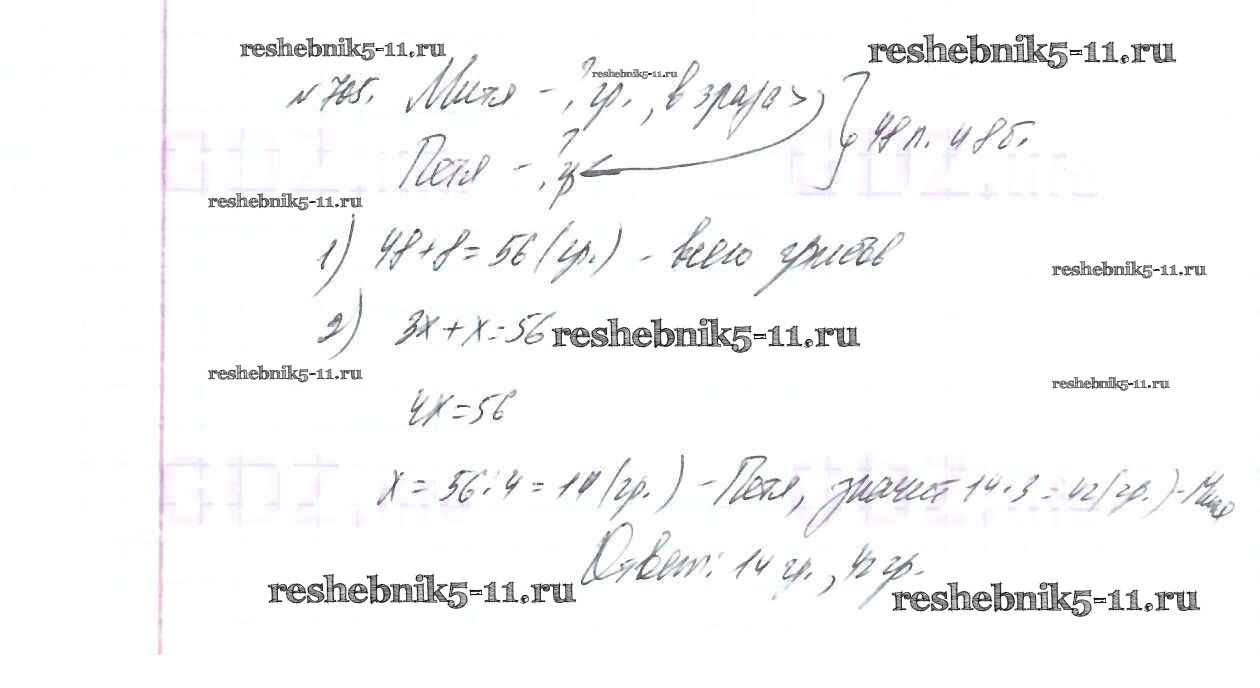 reshebnik5-11.ru
reshebnik5-11.ru
reshebnik5-11.ru
№ 705. Митя - ? гр., в 3 раза >
Петя - ? гр
} 48 п. и 8 б.
reshebnik5-11.ru
1) 48+8=56 (гр.) - всего грибов
reshebnik5-11.ru
2) 3x+x=56
reshebnik5-11.ru
reshebnik5-11.ru
reshebnik5-11.ru
4x=56
x = 56:4 = 14 (гр.) - Петя, значит 14·3=42 (гр.) - Митя
Ответ: 14 гр., 42 гр.
reshebnik5-11.ru
reshebnik5-11.ru